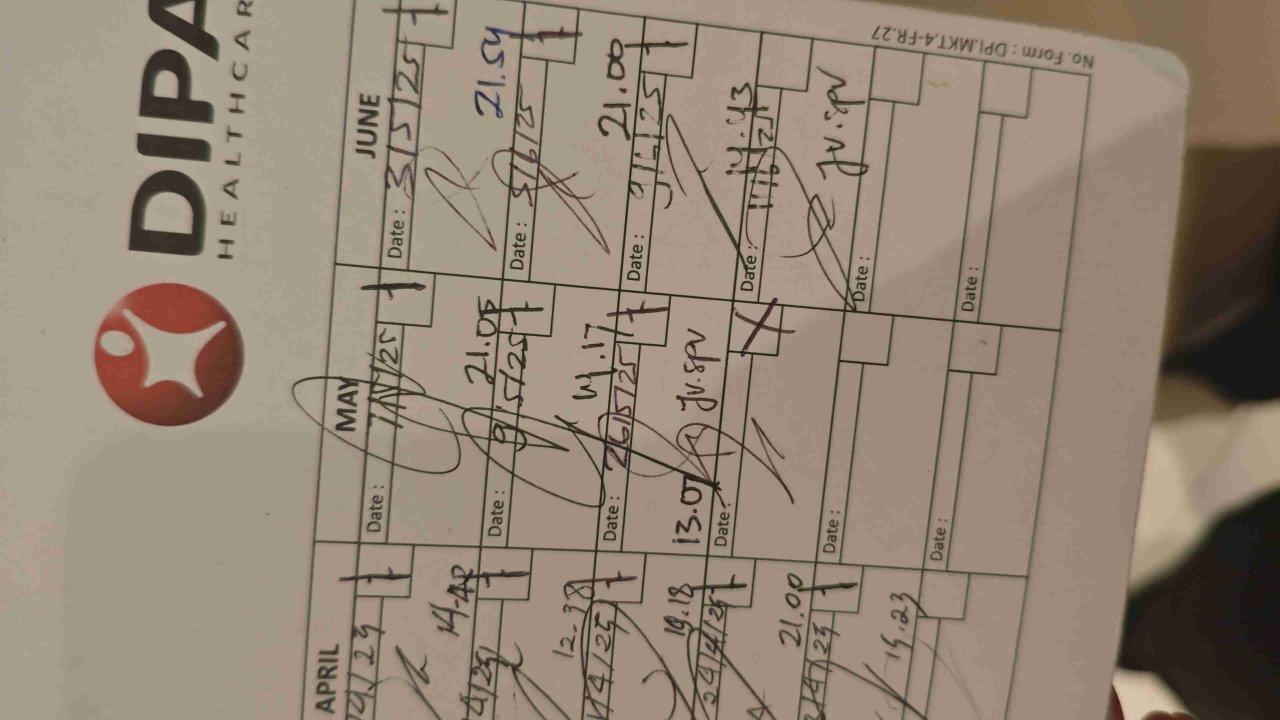 DIPA
HEALTHCAR
No. Form : DPI.MKT.4-FR.27
APRIL
MAY
JUNE
14.42
12.38
24/4/25
19.18
21.00
19.23
Date :
Date :
21.05
9/5/25
Date :
14.17
26/5/25
Date :
13.07
JV.spv
Date :
Date :
Date : 3/5/25
21.54
Date : 5/6/25
21.00
Date : 9/6/25
14.43
Date : 11/6/25
JV.spv
Date :
Date :